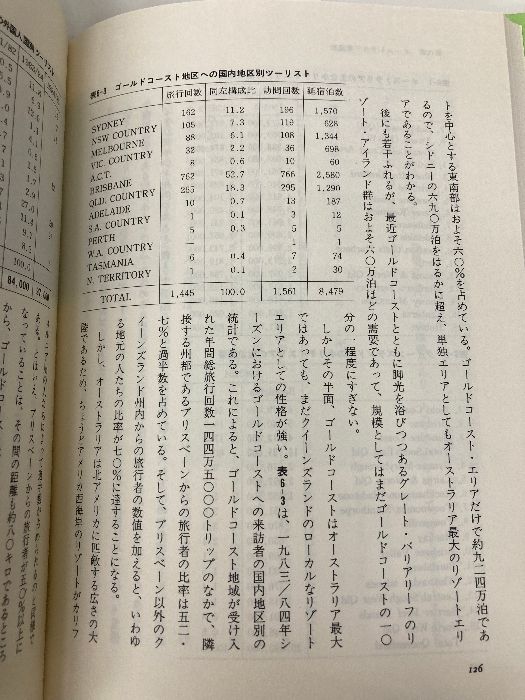 表6-3 ゴールドコースト地区への国内地区別ツーリスト
旅行回数 同左構成比 訪問回数 延宿泊数
SYDNEY 162 11.2 196 1,570
NSW COUNTRY 105 7.3 119 628
MELBOURNE 88 6.1 108 1,344
VIC. COUNTRY 32 2.2 36 698
A.C.T. 8 0.6 10 60
BRISBANE 762 52.7 766 2,580
QLD. COUNTRY 265 18.3 295 1,290
ADELAIDE 10 0.7 13 187
S.A. COUNTRY 1 0.1 3 12
PERTH 5 0.3 5 5
W.A. COUNTRY — 1 1
TASMANIA 6 0.4 7 74
N. TERRITORY 1 0.1 2 30
TOTAL 1,445 100.0 1,561 8,479
トを中心とする東南部はおよそ六〇%を占めている。ゴールドコースト・エリアだけで約九二四万泊であ
るので、シドニーの六九〇万泊をはるかに超え、単独エリアとしてもオーストラリア最大のリゾートエリ
アであることがわかる。
後にも若干ふれるが、最近ゴールドコーストとともに脚光を浴びつつあるグレート・バリアリーフのリ
ゾート・アイランド群はおよそ六〇万泊ほどの需要であって、規模としてはまだゴールドコーストの一〇
分の一程度にすぎない。
しかしその半面、ゴールドコーストはオーストラリア最大
ではあっても、まだクイーンズランドのローカルなリゾート
エリアとしての性格が強い。表6-3は、一九八三/八四年シ
ーズンにおけるゴールドコーストへの来訪者の国内地区別の
統計である。これによると、ゴールドコースト地域が受け入
れた年間総旅行回数一四四万五〇〇〇トリップのなかで、隣
接する州都であるブリスベーンからの旅行者の比率は五二・
七%と過半数を占めている。そして、ブリスベーン以外のク
イーンズランド州内からの旅行者の数値を加えると、いわゆ
る地元の人たちの比率が七〇%に達することになる。
しかし、オーストラリアは北アメリカに匹敵する広さの大
陸であるため、ちょうどアメリカ西海岸のリゾートがカリフ
126
ある。とはいえ、ブリスベーンからの旅行者が五〇%以上に
なっていることは、その間の距離も約八〇キロであるところ
から、ゴールドコース
84,000